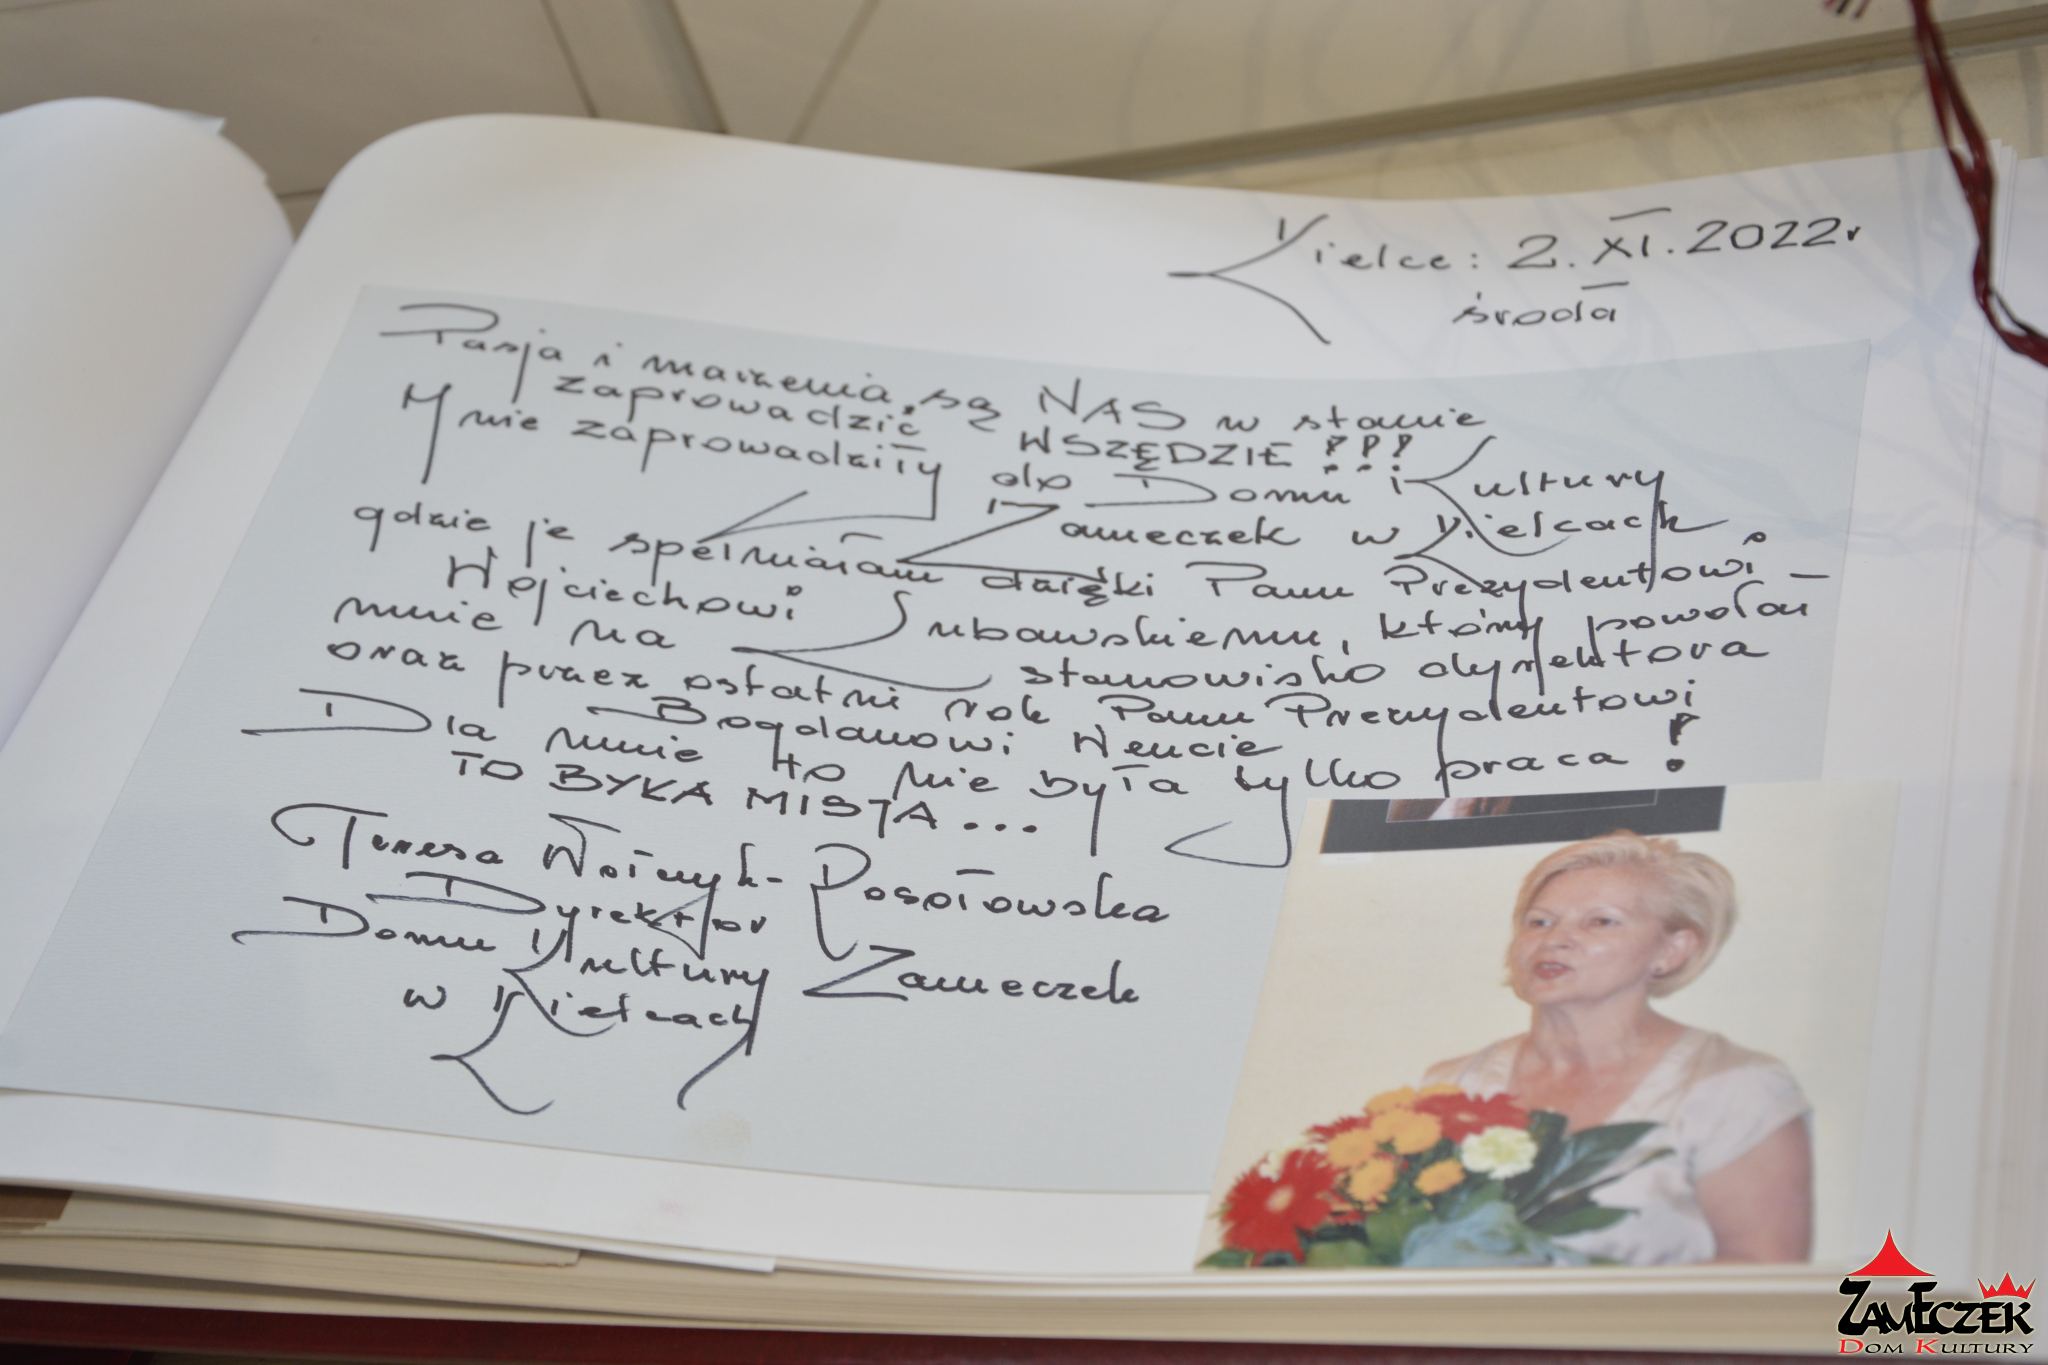 Kielce: 2. XI. 2022r
środa
Pasja i marzenia są NAS w stanie
zaprowadzić WSZĘDZIE !!!
Mnie zaprowadziły do Domu Kultury
Zameczek w Kielcach
gdzie je spełniałam dzięki Panu Prezydentowi
Wojciechowi Lubawskiemu, który powołał
mnie na stanowisko dyrektora
oraz przez ostatni rok Panu Prezydentowi
Bogdanowi Wencie
Dla mnie to nie była tylko praca!
TO BYŁA MISJA...
Teresa Wołczyk-Posołowska
Dyrektor
Domu Kultury Zameczek
w Kielcach
ZAMECZEK
DOM KULTURY